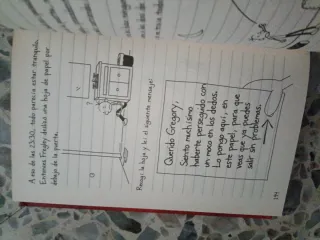 A eso de las 23:30, todo parecía estar tranquilo.
Entonces Fregley deslizó una hoja de papel por
debajo de la puerta.
Recogí la hoja y leí el siguiente mensaje:
Querido Gregory,
Siento muchísimo
haberte perseguido con
un moco en los dedos.
Lo pongo aquí, en
este papel, para que
veas que ya puedes
salir sin problemas.